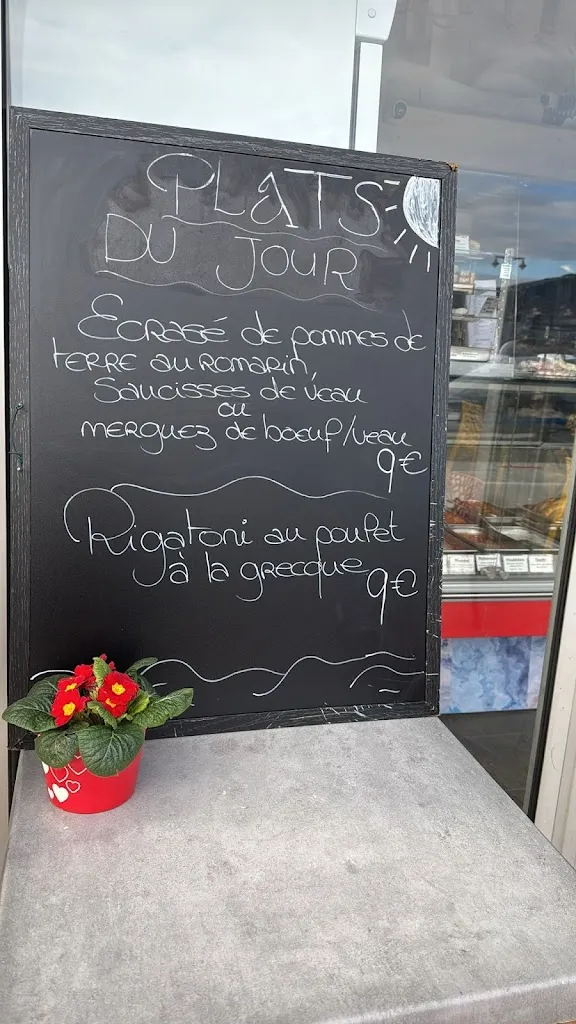 PLATS
DU JOUR
Ecrasé de pommes de
terre au romarin,
saucisses de veau
ou
merguez de boeuf/veau
9€
Rigatoni au poulet
à la grecque
9€